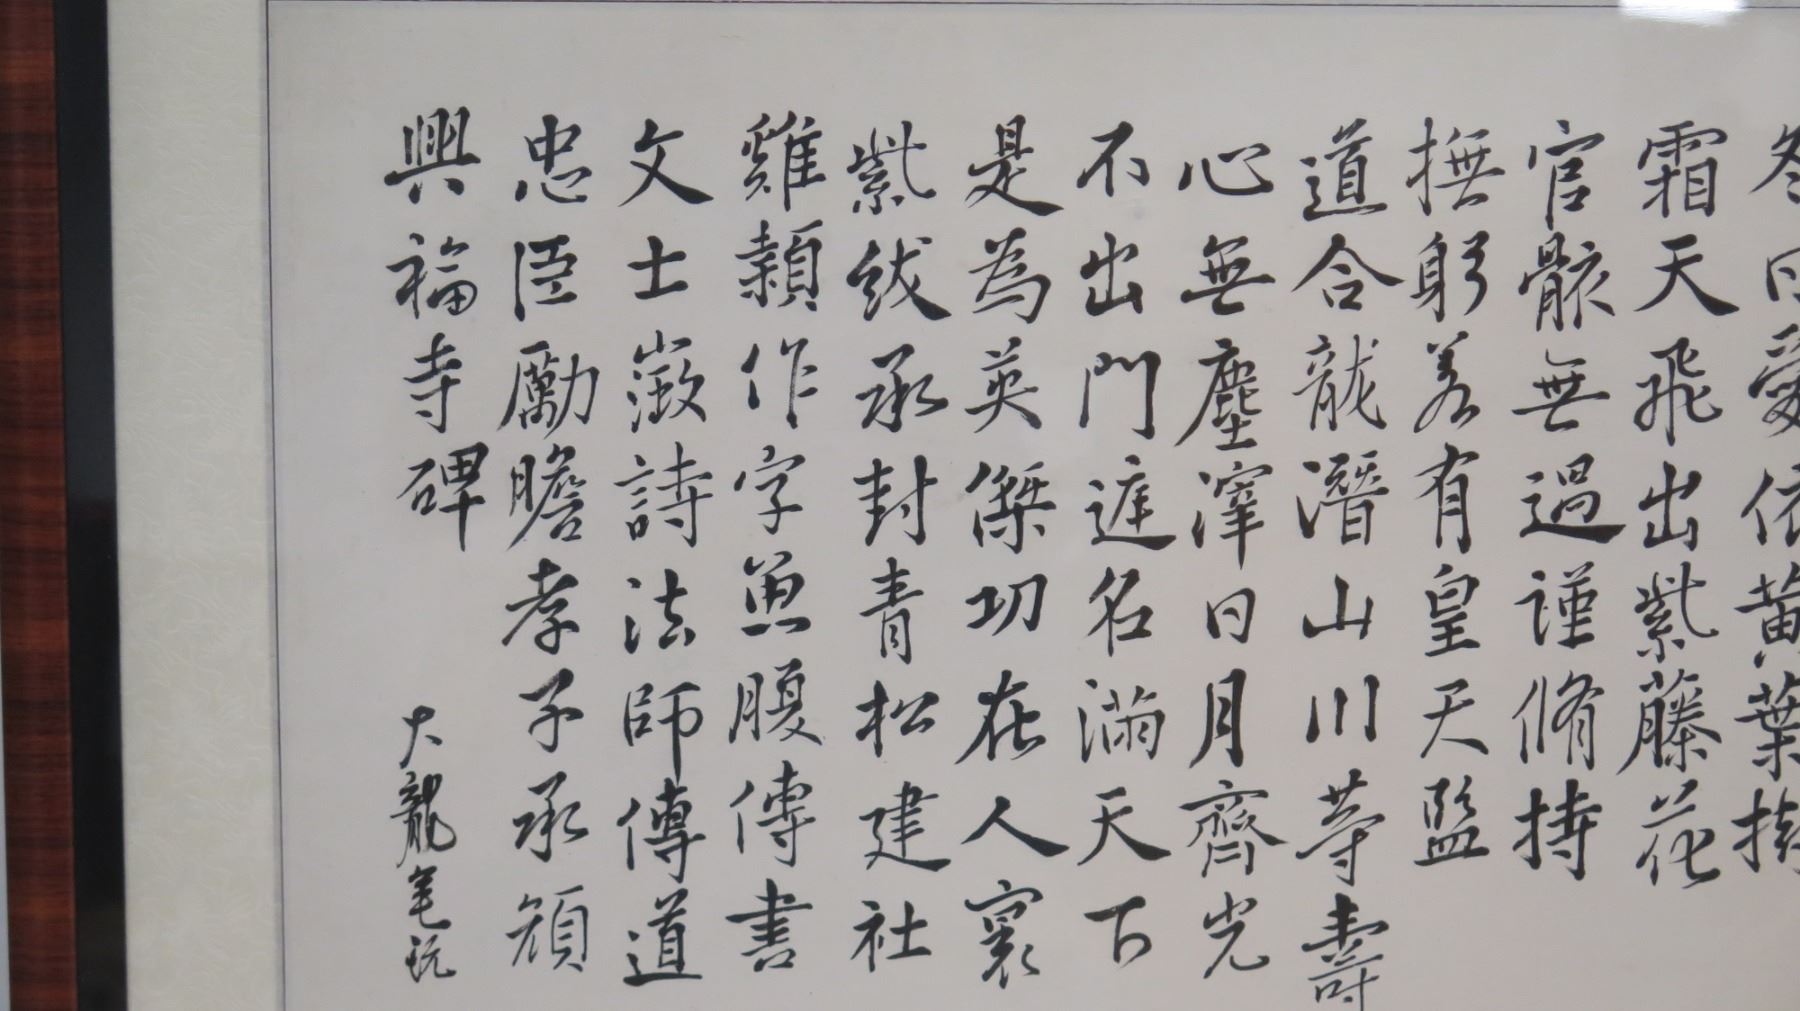 冬日愛依黃葉
霜天飛出紫藤花
官骸無過謹脩持
撫躬若有皇天監
道合龍潛山川等壽
心無塵滓日月齊光
不出門庭名滿天下
是為英傑功在人寰
紫紱承封青松建社
雞穎作字魚腹傳書
文士徵詩法師傳道
忠臣勵膽孝子承顏
興福寺碑
大龍